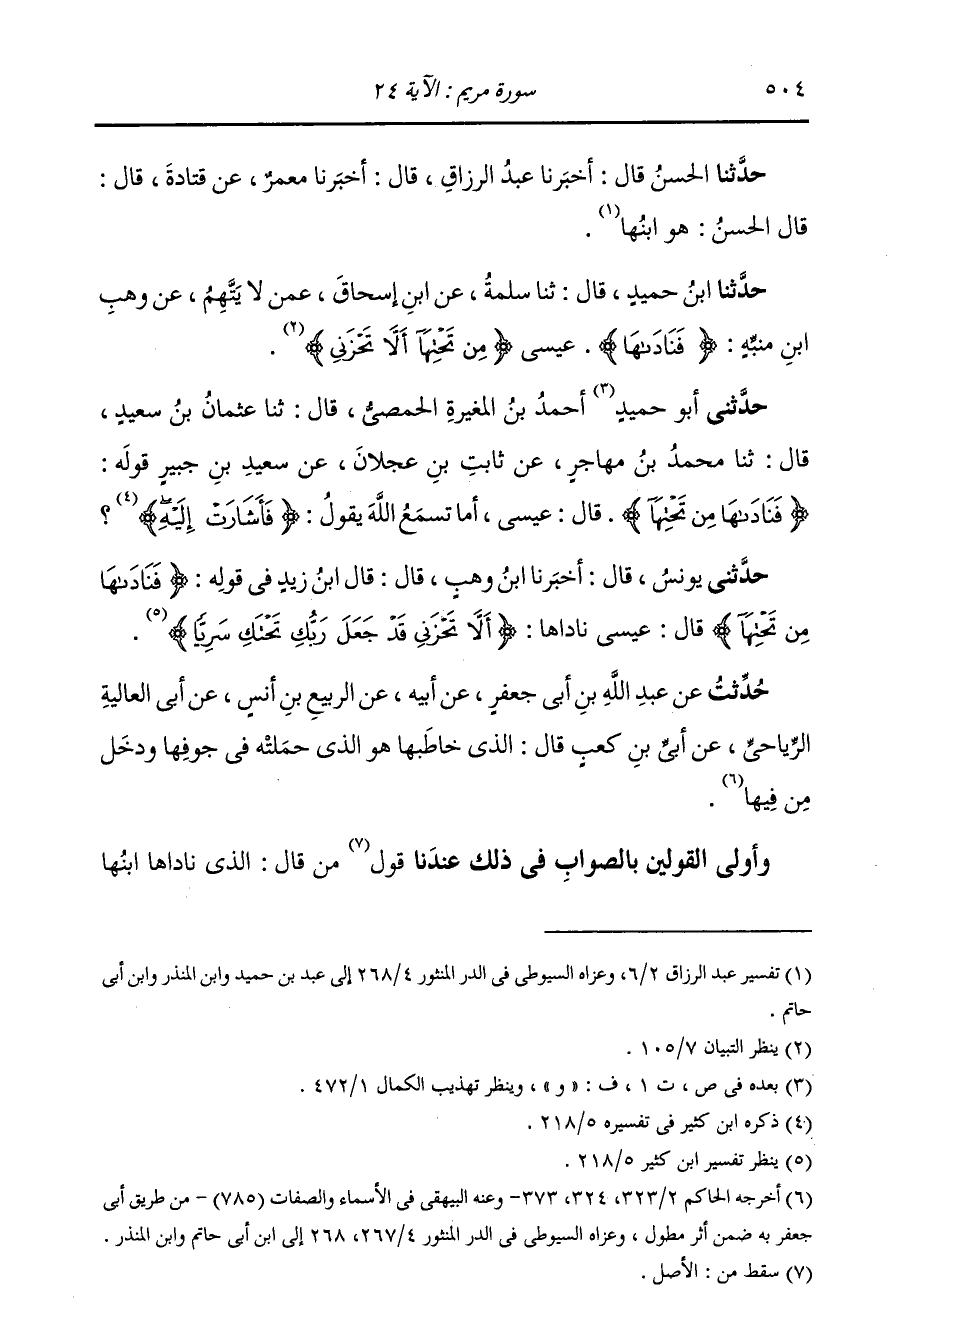 ٥٠٤ سورة مريم : الآية ٢٤
حدَّثنا الحسنُ قال : أخبَرنا عبدُ الرزاقِ ، قال : أخبَرنا معمرٌ ، عن قتادةَ ، قال :
قال الحسنُ : هو ابنُها(١) .
حدَّثنا ابنُ حميدٍ ، قال : ثنا سلمةُ ، عن ابنِ إسحاقَ ، عمن لا يَتَّهِمُ ، عن وهبِ
ابنِ منبِّهٍ : ﴿ فَنَادَىٰهَا ﴾ . عيسى ﴿ مِن تَحْتِهَآ أَلَّا تَحْزَنِي ﴾(٢) .
حدَّثنى أبو حميدٍ(٣) أحمدُ بنُ المغيرةِ الحمصىُّ ، قال : ثنا عثمانُ بنُ سعيدٍ ،
قال : ثنا محمدُ بنُ مهاجرٍ ، عن ثابتِ بنِ عجلانَ ، عن سعيدِ بنِ جبيرٍ قولَه :
﴿ فَنَادَىٰهَا مِن تَحْتِهَآ ﴾ . قال : عيسى ، أما تسمَعُ اللَّهَ يقولُ : ﴿ فَأَشَارَتْ إِلَيْهِۖ ﴾(٤) ؟
حدَّثنى يونسُ ، قال : أخبَرنا ابنُ وهبٍ ، قال : قال ابنُ زيدٍ فى قولِه : ﴿ فَنَادَىٰهَا
مِن تَحْتِهَآ ﴾ قال : عيسى ناداها : ﴿ أَلَّا تَحْزَنِي قَدْ جَعَلَ رَبُّكِ تَحْتَكِ سَرِيًّا ﴾(٥) .
حُدِّثتُ عن عبدِ اللَّهِ بنِ أبى جعفرٍ ، عن أبيه ، عن الربيعِ بنِ أنسٍ ، عن أبى العاليةِ
الرِّياحىِّ ، عن أبىِّ بنِ كعبٍ قال : الذى خاطَبها هو الذى حمَلتْه فى جوفِها ودخَل
مِن فِيها(٦) .
وأولى القولين بالصوابِ فى ذلك عندَنا قول(٧) من قال : الذى ناداها ابنُها
(١) تفسير عبد الرزاق ٦/٢، وعزاه السيوطى فى الدر المنثور ٢٦٨/٤ إلى عبد بن حميد وابن المنذر وابن أبى
حاتم .
(٢) ينظر التبيان ١٠٥/٧ .
(٣) بعده فى ص ، ت ١ ، ف : « و » ، وينظر تهذيب الكمال ٤٧٢/١ .
(٤) ذكره ابن كثير فى تفسيره ٢١٨/٥ .
(٥) ينظر تفسير ابن كثير ٢١٨/٥ .
(٦) أخرجه الحاكم ٣٢٣/٢، ٣٢٤، ٣٧٣- وعنه البيهقى فى الأسماء والصفات (٧٨٥) - من طريق أبى
جعفر به ضمن أثر مطول ، وعزاه السيوطى فى الدر المنثور ٢٦٧/٤، ٢٦٨ إلى ابن أبى حاتم وابن المنذر .
(٧) سقط من : الأصل .